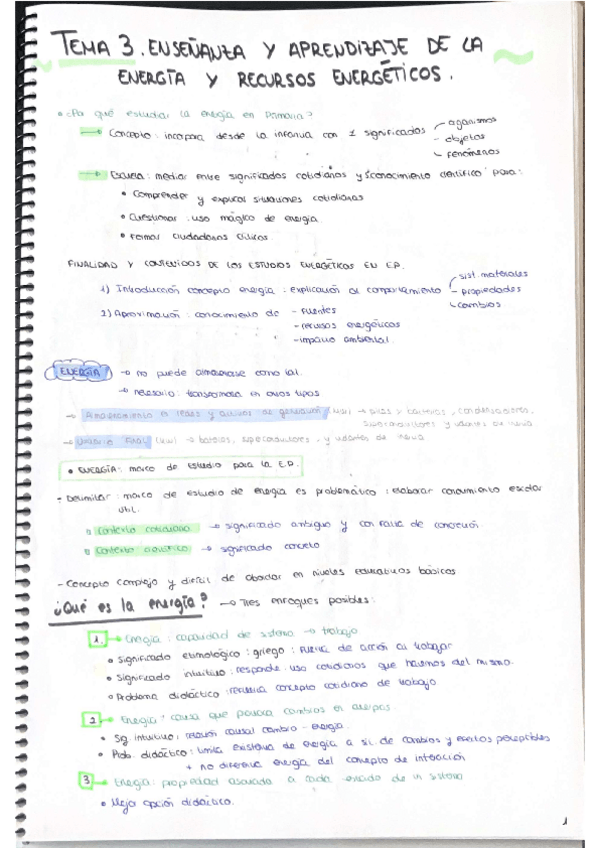 TEMA 3. ENSEÑANZA Y APRENDIZAJE DE LA
ENERGÍA Y RECURSOS ENERGÉTICOS.
¿Por qué estudiar la energía en Primaria?
Concepto: incorpora desde la infancia con significados
organismos
objetos
fenómenos
Escuela: mediar entre significados cotidianos y conocimiento científico para:
Comprender y explicar situaciones cotidianas
Cuestionar: uso mágico de energía.
Formar ciudadanos críticos.
FINALIDAD Y CONTENIDOS DE LOS ESTUDIOS ENERGÉTICOS EN E.P.
1) Introducción concepto energía: explicación al comportamiento
sist. materiales
- propiedades
cambios
2) Aproximación: conocimiento de - fuentes
- recursos energéticos
- impacto ambiental.
ENERGÍA → no puede almacenarse como tal.
→ necesario: transformarla en otros tipos
→ Almacenamiento en redes y de generación (MW) →
→ (kW) → baterías, superconductores, y volantes de inercia
• ENERGÍA: marco de estudio para la E.P.
- Delimitar: marco de estudio de energía es problemático: elaborar conocimiento escolar
útil.
Contexto cotidiano → significado ambiguo y con falta de concreción.
Contexto científico → significado concreto
- Concepto complejo y difícil de abordar en niveles educativos básicos
¿Qué es la energía? → Tres enfoques posibles:
1. Energía: capacidad de sistema → trabajo
Significado etimológico: griego: fuerza de acción al trabajar
Significado intuitivo: responde: uso cotidiano que hacemos del mismo.
Problema didáctico: concepto cotidiano de trabajo
2 Energía: causa que provoca cambios en cuerpos.
Sig intuitivo: relación causal cambio - energía.
Prob. didáctico: limita existencia de energía a si. de cambios y efectos perceptibles
+ no diferencia energía del concepto de interacción
3 Energía: propiedad asociada a cada estado de un sistema
Mejor opción didáctica.
1